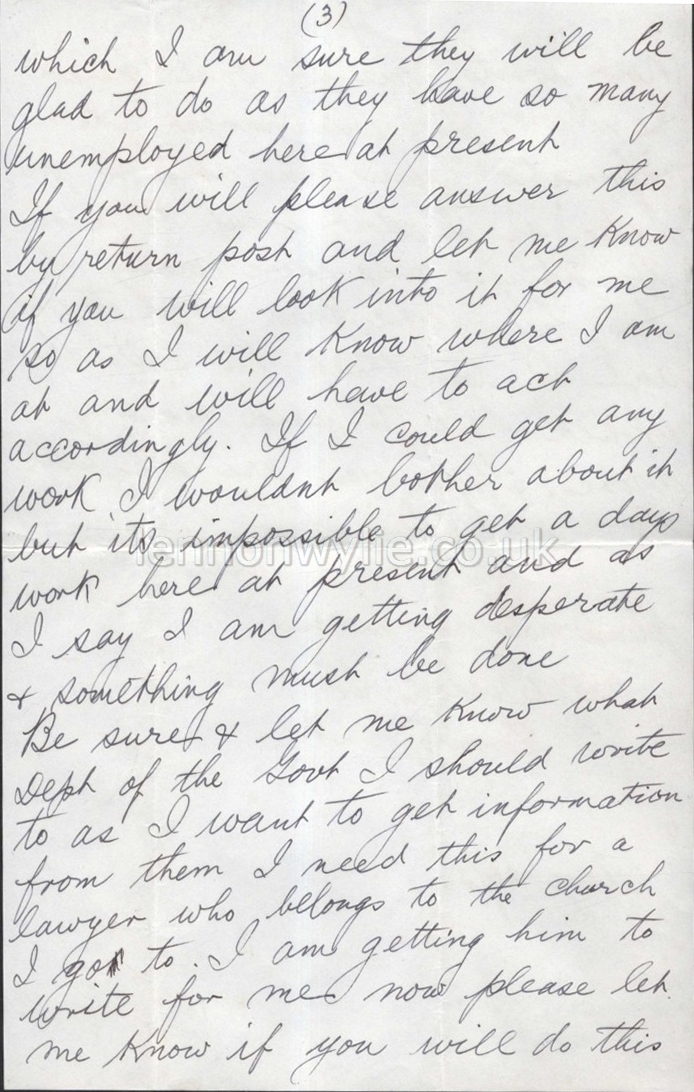 (3)
which I am sure they will be
glad to do as they have so many
unemployed here at present
If you will please answer this
by return post and let me know
if you will look into it for me
so as I will know where I am
at and will have to act
accordingly. If I could get any
work I wouldnt bother about it
but its impossible to get a days
lennonwylie.co.uk
work here at present and as
I say I am getting desperate
& something must be done
Be sure & let me know what
Dept of the Govt I should write
to as I want to get information
from them I need this for a
lawyer who belongs to the church
I go to. I am getting him to
write for me now please let
me know if you will do this